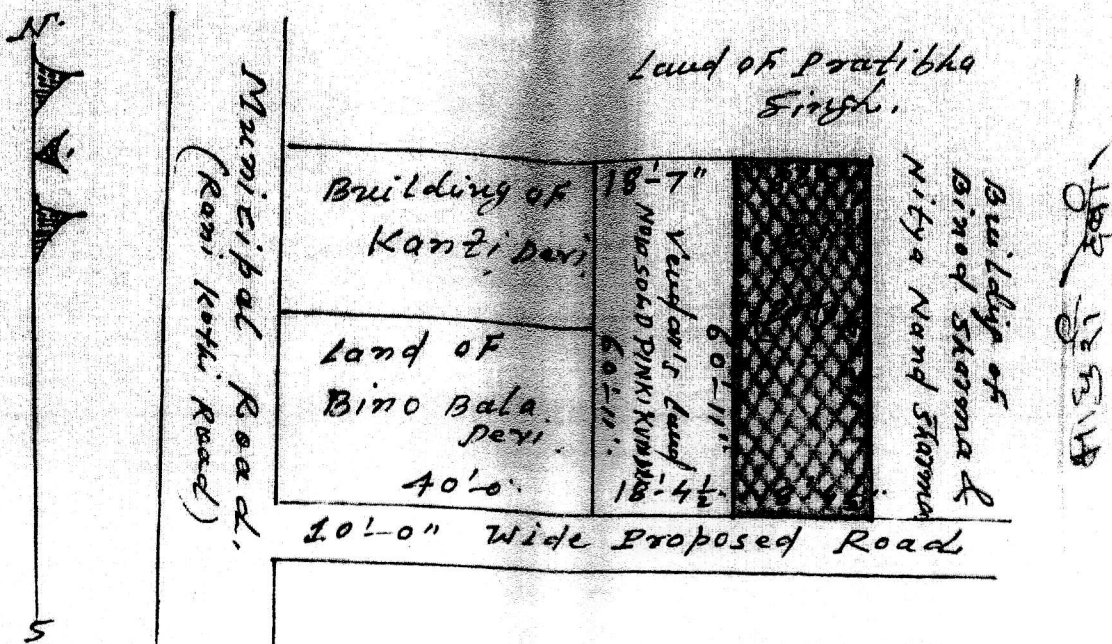 N.
S
Municipal Road.
(Rani Kothi Road)
Land of Pratibha
Singh.
Building of
Kanti Devi
Land of
Bino Bala
Devi.
40'-0"
18'-7"
Vendor's Land
NOW SOLD PINKI KUMARI
60'-11"
60'-11"
18'-4½"
Building of
Binod Sharma &
Nitya Nand Sharma
10'-0" Wide Proposed Road